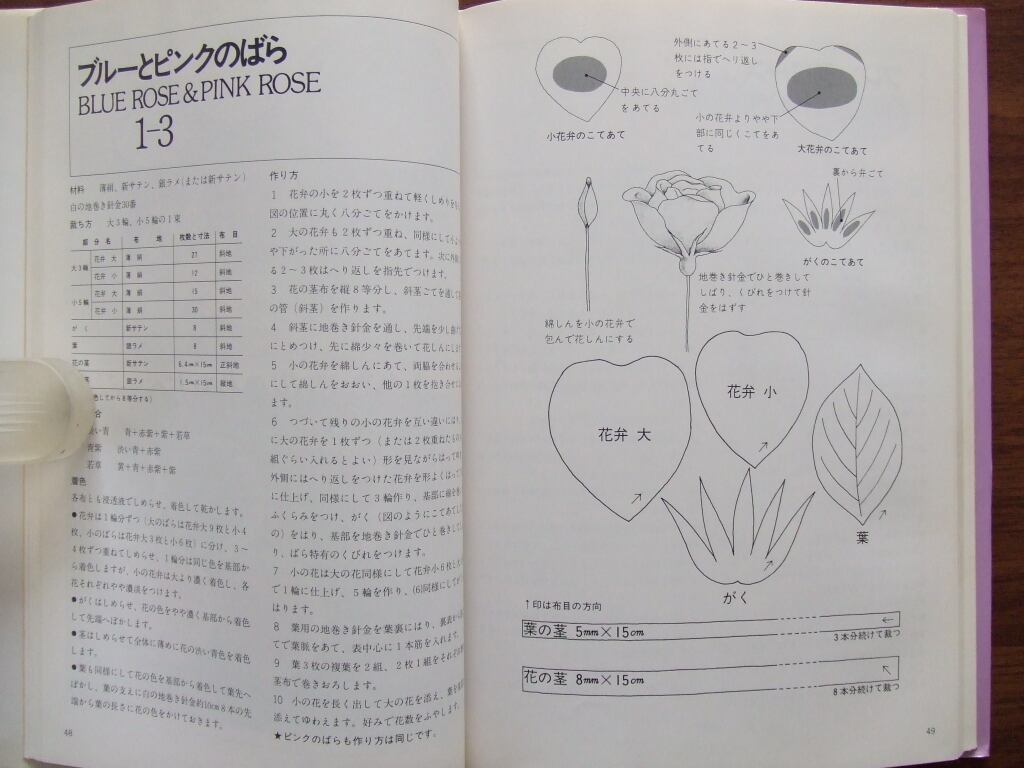 ブルーとピンクのばら
BLUE ROSE & PINK ROSE
1-3
材料 薄絹、新サテン、銀ラメ(または新サテン)
白の地巻き針金30番
裁ち方 大3輪、小5輪の1束
部分名 布地 枚数と寸法 布目
大3輪 花弁 大 薄絹 27 斜地
花弁 小 薄絹 12 斜地
小5輪 花弁 大 薄絹 15 斜地
花弁 小 薄絹 30 斜地
がく 新サテン 8 斜地
葉 銀ラメ 8 斜地
花の茎 新サテン 6.4cm×15cm 正斜地
銀ラメ 1.5cm×15cm 縦地
色してから8等分する)
合
い青 青+赤紫+紫+若草
青紫 渋い青+赤紫
若草 黄+青+赤紫+紫
着色
各布とも浸透液でしめらせ、着色して乾かします。
●花弁は1輪分ずつ(大のばらは花弁大9枚と小4
枚、小のばらは花弁大3枚と小6枚)に分け、3〜
4枚ずつ重ねてしめらせ、1輪分は同じ色を基部か
ら着色しますが、小の花弁は大より濃く着色し、各
花それぞれやや濃淡をつけます。
●がくはしめらせ、花の色をやや濃く基部から着色
して先端へぼかします。
●茎はしめらせて全体に薄めに花の渋い青色を着色
します。
●葉も同様にして花の色を基部から着色して葉先へ
ぼかし、葉の支えに白の地巻き針金約10cm8本の先
端から葉の長さに花の色をかけておきます。
48
作り方
1 花弁の小を2枚ずつ重ねて軽くしめり
図の位置に丸く八分ごてをかけます。
2 大の花弁も2枚ずつ重ね、同様にして小よ
や下がった所に八分ごてをあてます。次に外側
る2〜3枚はへり返しを指先でつけます。
3 花の茎布を縦8等分し、斜茎ごてを通して
の管(斜茎)を作ります。
4 斜茎に地巻き針金を通し、先端を少し曲げ
にとめつけ、先に綿少々を巻いて花しんにし
5 小の花弁を綿しんにあて、両脇を合わせ
にして綿しんをおおい、他の1枚を抱き合せに
ます。
6 つづいて残りの小の花弁を互い違いには
に大の花弁を1枚ずつ(または2枚重ねたもの
組ぐらい入れるとよい)形を見ながらはって
外側にはへり返しをつけた花弁を形よくはって
に仕上げ、同様にして3輪作り、基部に綿を巻
ふくらみをつけ、がく(図のようにこてあて
の)をはり、基部を地巻き針金でひと巻きして
り、ばら特有のくびれをつけます。
7 小の花は大の花同様にして花弁小6枚と大
で1輪に仕上げ、5輪を作り、(6)同様にしてが
はります。
8 葉用の地巻き針金を葉裏にはり、裏表から
てで葉脈をあて、表中心に1本筋を入れます。
9 葉3枚の複葉を2組、2枚1組をそれぞれ
茎布で巻きおろします。
10 小の花を長く出して大の花を添え、葉を
添えてゆわえます。好みで花数をふやします。
★ピンクのばらも作り方は同じです。
中央に八分丸ごて
をあてる
小花弁のこてあて
外側にあてる2〜3
枚には指でへり返し
をつける
小の花弁よりやや下
部に同じくこてをあ
てる
大花弁のこてあて
裏から弁ごて
がくのこてあて
綿しんを小の花弁で
包んで花しんにする
地巻き針金でひと巻きして
しばり、くびれをつけて針
金をはずす
花弁 大
花弁 小
葉
がく
↑印は布目の方向
葉の茎 5mm×15cm
3本分続けて裁つ
花の茎 8mm×15cm
8本分続けて裁つ
49